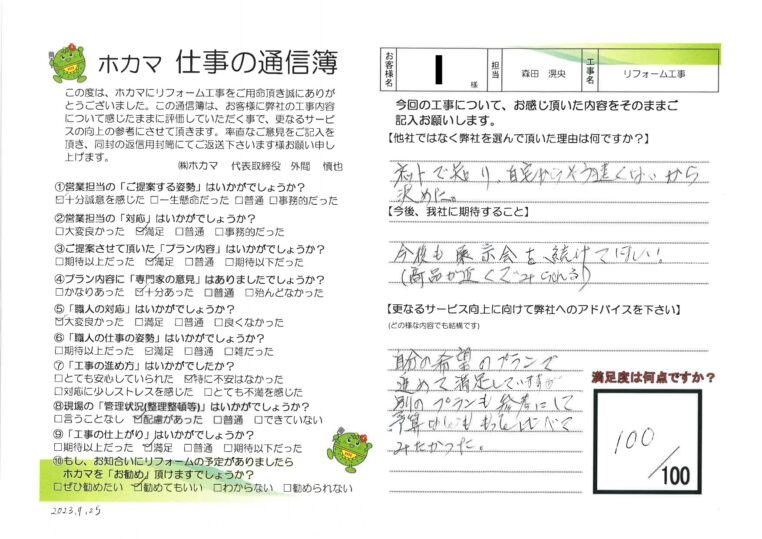 ホカマ 仕事の通信簿
この度は、ホカマにリフォーム工事をご用命頂き誠にありが
とうございました。この通信簿は、お客様に弊社の工事内容
について感じたままに評価していただく事で、更なるサービ
スの向上の参考にさせて頂きます。率直なご意見をご記入を
頂き、同封の返信用封筒にてご返送下さいます様お願い申し
上げます。
㈱ホカマ 代表取締役 外間 慎也
①営業担当の「ご提案する姿勢」はいかがでしょうか？
☑十分誠意を感じた □一生懸命だった □普通 □事務的だった
②営業担当の「対応」はいかがでしょうか？
□大変良かった ☑満足 □普通 □事務的だった
③ご提案させて頂いた「プラン内容」はいかがでしょうか？
□期待以上だった ☑満足 □普通 □期待以下だった
④プラン内容に「専門家の意見」はありましたでしょうか？
□かなりあった ☑十分あった □普通 □殆んどなかった
⑤「職人の対応」はいかがでしょうか？
☑大変良かった □満足 □普通 □良くなかった
⑥「職人の仕事の姿勢」はいかがでしょうか？
□期待以上だった ☑満足 □普通 □雑だった
⑦「工事の進め方」はいかがでしたか？
□とても安心していられた ☑特に不安はなかった
□対応に少しストレスを感じた □とても不満を感じた
⑧現場の「管理状況(整理整頓等)」はいかがでしょうか？
□言うことなし ☑配慮があった □普通 □できていない
⑨「工事の仕上がり」はいかがでしょうか？
□期待以上だった ☑満足 □普通 □期待以下だった
⑩もし、お知合いにリフォームの予定がありましたら
ホカマを「お勧め」頂けますでしょうか？
□ぜひ勧めたい ☑勧めてもいい □わからない □勧められない
2023.9.25
お客様名 様 担当 森田 滉央 工事名 リフォーム工事
今回の工事について、お感じ頂いた内容をそのままご
記入お願いします。
【他社ではなく弊社を選んで頂いた理由は何ですか？】
ネットで知り、自宅からそう遠くないから
決めた。
【今後、我社に期待すること】
今後も展示会を続けてほしい！
(商品が近くでみられる)
【更なるサービス向上に向けて弊社へのアドバイスを下さい】
(どの様な内容でも結構です)
自分の希望のプランで
進めて満足していますが
別のプランも参考にして
予算 もっとくらべて
みたかった。
満足度は何点ですか？
100
/100